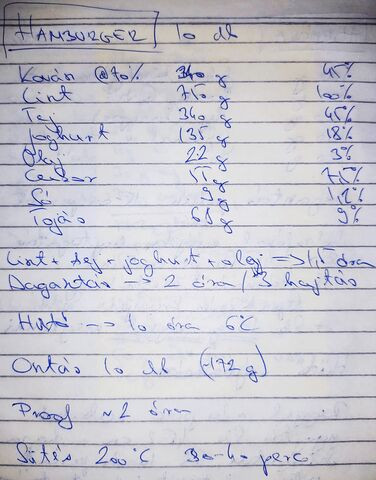 HAMBURGER 10 db
Kovász @70% 340 g 45%
Liszt 750 g 100%
Tej 340 g 45%
Joghurt 135 g 18%
Olaj 22 g 3%
Cukor 55 g 7,5%
Só 9 g 1,2%
Tojás 68 g 9%
Liszt + tej + joghurt + olaj => 1,5 óra
Dagasztás --> 2 óra / 3 hajtás
Hűtő --> 10 óra 6°C
Osztás 10 db (~172 g)
Proof ~ 2 óra
Sütés 200°C 30-40 perc